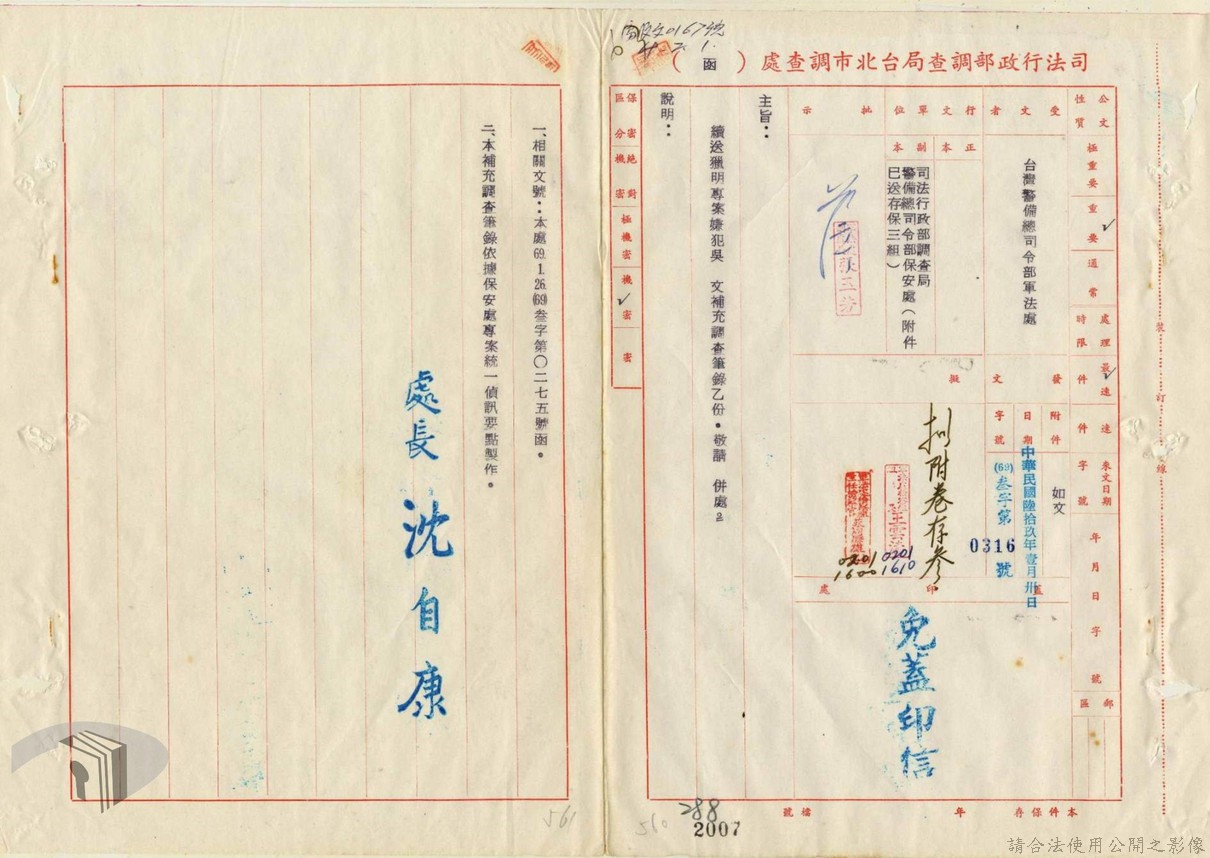 司法行政部調查局台北市調查處（函）
公文性質
極重要
重要
通常
處理時限
最速件
速件
來文日期字號
年月日
字號
郵區
受文者
台灣警備總司令部軍法處
行文單位
正本
副本
司法行政部調查局
警備總司令部保安處（附件
已送存保三組）
批示
發文
附件
如文
日期
中華民國陸拾玖年壹月卅日
字號
(69)叁字第
0316號
擬
拟附卷存參
0201
1610
0201
1600
蓋印處
免蓋印信
主旨：
續送獵明專案嫌犯吳　文補充調查筆錄乙份，敬請　併處。
說明：
保密區分
絕對機密
極機密
機密
密
一、相關文號：本處69.1.26.(69)叁字第〇二七五號函。
二、本補充調查筆錄依據保安處專案統一偵訊要點製作。
處長 沈自康
本件保存　年
檔號
288
2007
510
561
請合法使用公開之影像